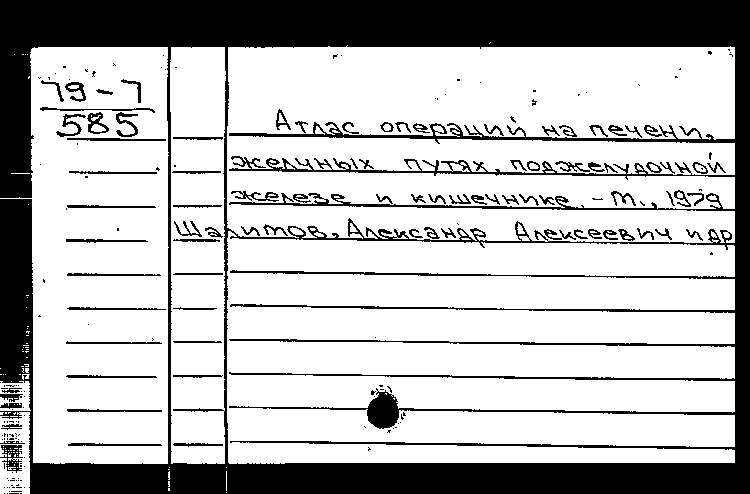 79-7
585
Атлас операций на печени,
желчных путях, поджелудочной
железе и кишечнике. - М., 1979
Шалимов, Александр Алексеевич и др